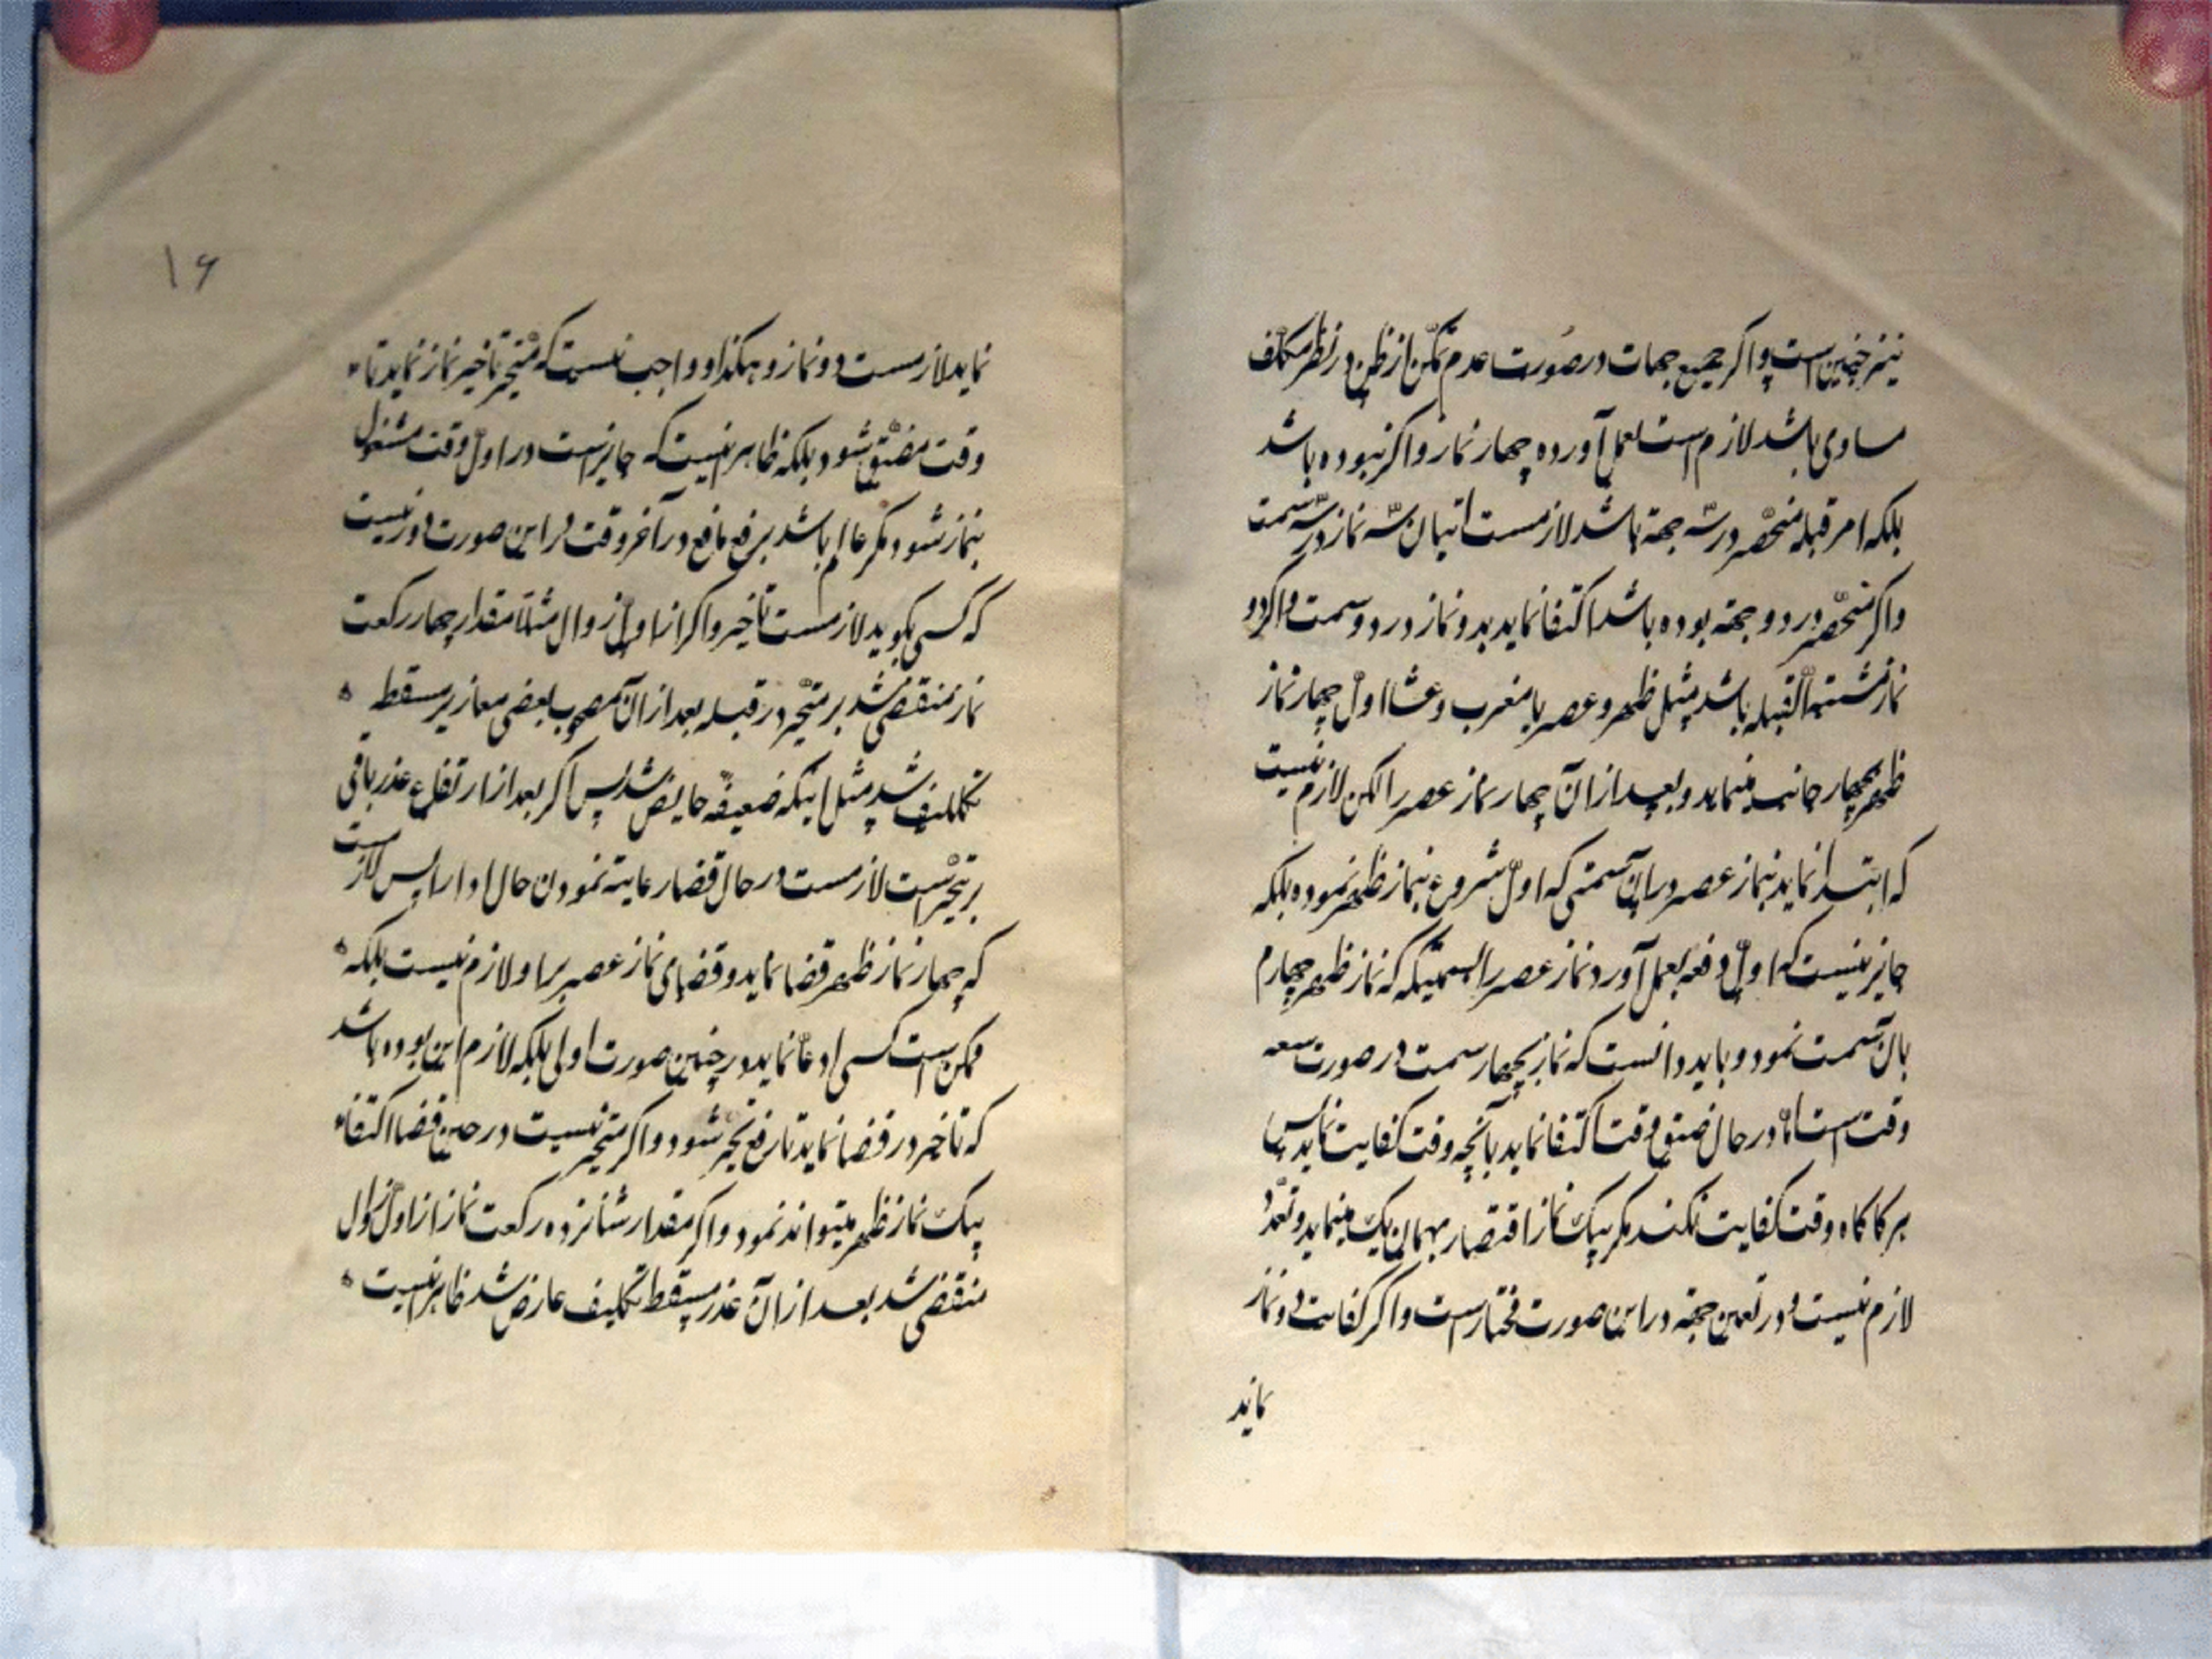 نیز چنین است و اگر جمیع جهات در صورت عدم تمکن از ظن در نظر مکلف
مساوی باشد لازم است بعمل آورده چهار نماز و اگر نبوده باشد
بلکه امر قبله منحصر در سه جهة باشد لازمست اتیان سه نماز در سه سمت
و اگر منحصر در دو جهة بوده باشد اکتفا نماید بدو نماز در دو سمت و اگر دو
نماز مشتبه القبله باشد مثل ظهر و عصر یا مغرب و عشا اول چهار نماز
ظهر بچهار جانب مینماید و بعد از آن چهار نماز عصر را لکن لازم نیست
که ابتدا نماید بنماز عصر در آن سمتی که اول شروع بنماز ظهر نموده بلکه
جایز نیست که اول دفعه بعمل آورد نماز عصر را بسمتیکه که نماز ظهر چهارم
بان سمت نمود و باید دانست که نماز بچهار سمت در صورت سعه
وقت است اما در حال ضیق وقت اکتفا نماید بآنچه وقت کفایت نماید پس
هر گاه گاه وقت کفایت نکند مگر بیک نماز اقتصار بهمان یک مینماید و تعدد
لازم نیست و در تعیین جهة در این صورت مختار است و اگر کفایت دو نماز
نماید
۱۶
نماید لازمست دو نماز و هکذا و واجب نیست که متحیر تأخیر نماز نماید تا
وقت مضیق شود بلکه ظاهر اینست که جایز است در اول وقت مشغول
بنماز شود مگر عالم باشد برفع مانع در آخر وقت در این صورت دور نیست
که کسی بگوید لازمست تأخیر و اگر از اول زوال مثلا مقدار چهار رکعت
نماز منقضی شد بر متحیر در قبله بعد از آن مصحوب بعضی معاذیر مسقطه
تکلیف شد مثل اینکه ضعیفه حایض شد پس اگر بعد از ارتفاع عذر باقی
بر تحیر است لازمست در حال قضا رعایة نمودن حال ادا را پس لازمست
که چهار نماز ظهر قضا نماید و قضای نماز عصر بر او لازم نیست بلکه
ممکن است کسی ادعا نماید در چنین صورت اولی بلکه لازم این بوده باشد
که تأخیر در قضا نماید تا رفع تحیر شود و اگر متحیر نیست در حین قضا اکتفاء
بیک نماز ظهر میتواند نمود و اگر مقدار شانزده رکعت نماز از اول زوال
منقضی شد بعد از آن عذر مسقط تکلیف عارض شد ظاهر اینست